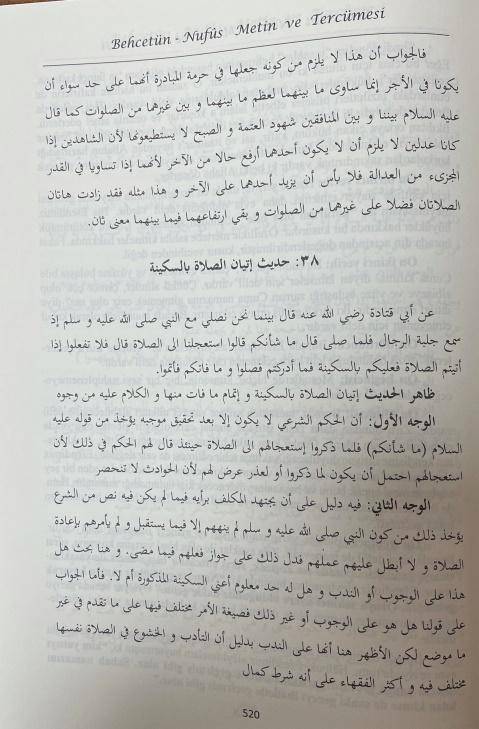 Behcetün - Nufûs Metin ve Tercümesi
فالجواب أن هذا لا يلزم من كونه جعلها في حرمة المبادرة أنهما على حد سواء أن
يكونا في الأجر إنما ساوى ما بينهما لعظم ما بينهما و بين غيرهما من الصلوات كما قال
عليه السلام بيننا و بين المنافقين شهود العتمة و الصبح لا يستطيعونها لأن الشاهدين إذا
كانا عدلين لا يلزم أن لا يكون أحدهما أرفع حالا من الآخر لأنهما إذا تساويا في القدر
المجزىء من العدالة فلا بأس أن يزيد أحدهما على الآخر و هذا مثله فقد زادت هاتان
الصلاتان فضلا على غيرهما من الصلوات و بقي ارتفاعهما فيما بينهما معنى ثان.
٣٨: حديث إتيان الصلاة بالسكينة
عن أبي قتادة رضي الله عنه قال بينما نحن نصلي مع النبي صلى الله عليه و سلم إذ
سمع جلبة الرجال فلما صلى قال ما شأنكم قالوا استعجلنا الى الصلاة قال فلا تفعلوا إذا
أتيتم الصلاة فعليكم بالسكينة فما أدركتم فصلوا و ما فاتكم فأتموا.
ظاهر الحديث إتيان الصلاة بالسكينة و إتمام ما فات منها و الكلام عليه من وجوه
الوجه الأول: أن الحكم الشرعي لا يكون إلا بعد تحقيق موجبه يؤخذ من قوله عليه
السلام (ما شأنكم) فلما ذكروا إستعجالهم الى الصلاة حينئذ قال لهم الحكم في ذلك لأن
استعجالهم احتمل أن يكون لما ذكروا أو لعذر عرض لهم لأن الحوادث لا تنحصر
الوجه الثاني: فيه دليل على أن يجتهد المكلف برأيه فيما لم يكن فيه نص من الشرع
يؤخذ ذلك من كون النبي صلى الله عليه و سلم لم ينههم إلا فيما يستقبل و لم يأمرهم بإعادة
الصلاة و لا أبطل عليهم عملهم فدل ذلك على جواز فعلهم فيما مضى. و هنا بحث هل
هذا على الوجوب أو الندب و هل له حد معلوم أعني السكينة المذكورة أم لا. فأما الجواب
على قولنا هل هو على الوجوب أو غير ذلك فصيغة الأمر مختلف فيها على ما تقدم في غير
ما موضع لكن الأظهر هنا أنها على الندب بدليل أن التأدب و الخشوع في الصلاة نفسها
مختلف فيه و أكثر الفقهاء على أنه شرط كمال
520